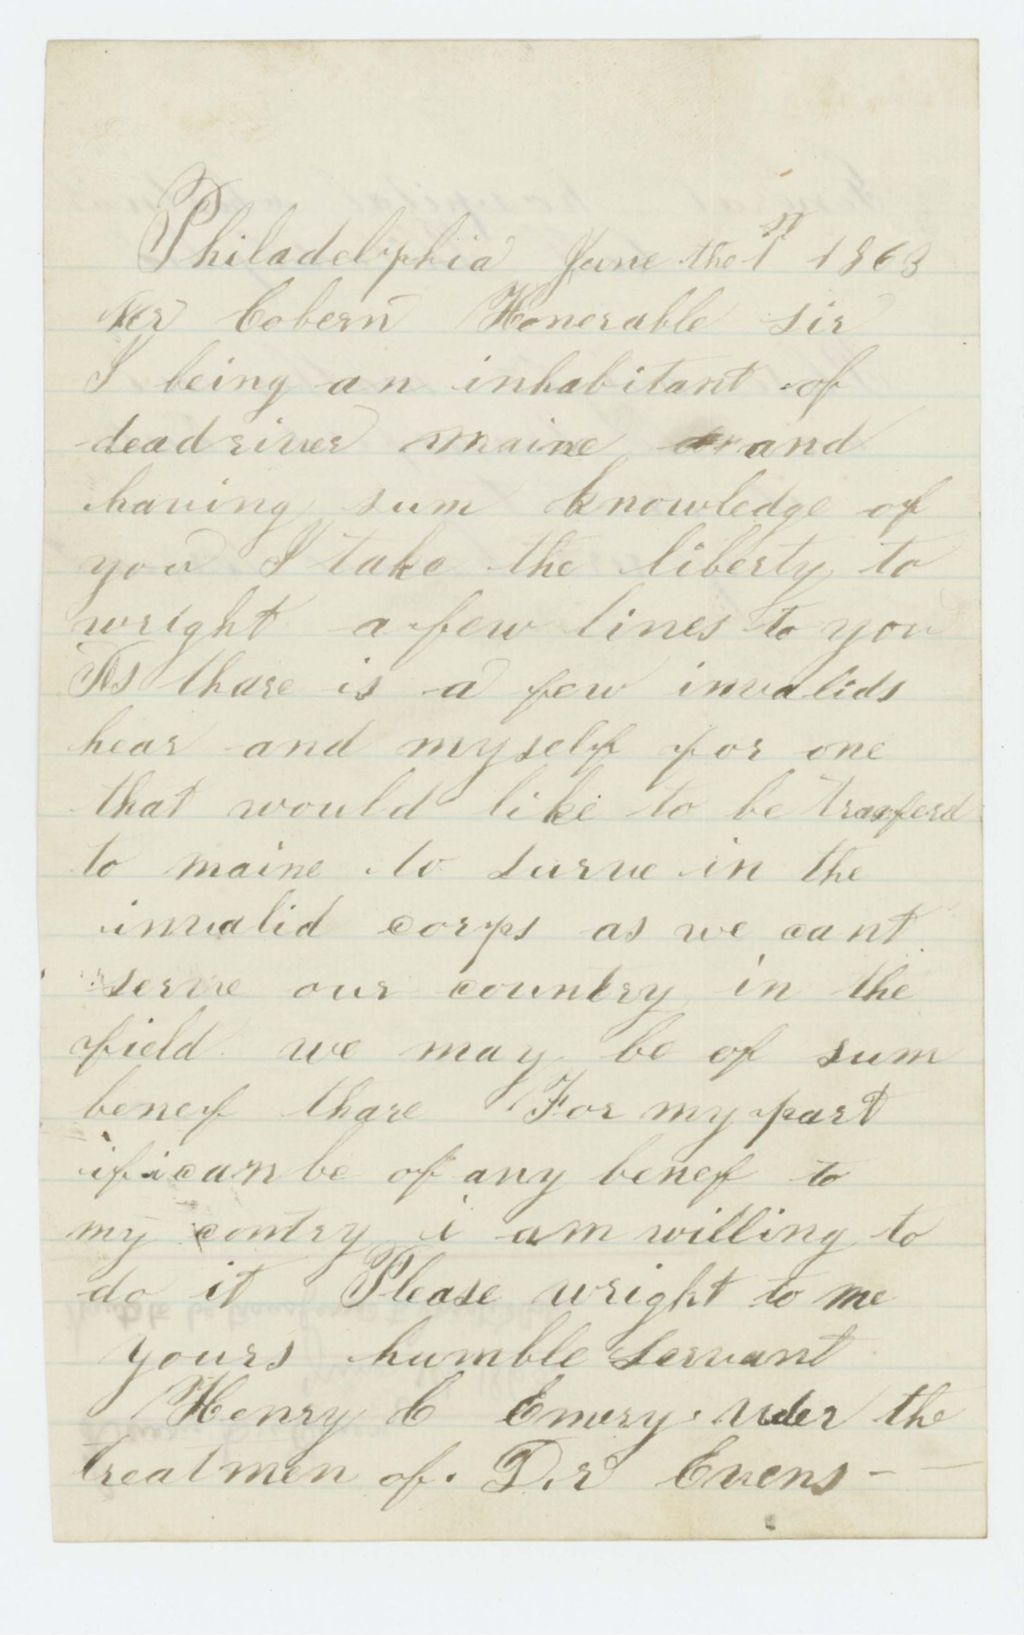 Philadelphia June the 1st 1863
Mr Cobern Honerable sir
I being an inhabitant of
deadriver maine and
having sum knowledge of
you I take the liberty to
wright a few lines to you
As thare is a few invalids
hear and myself for one
that would like to be tranferd
to maine to surve in the
invalid corps as we cant
serve our country in the
field we may be of sum
benef thare For my part
if i can be of any benef to
my contry i am willing to
do it Please wright to me
yours humble servant
Henry C Emery uder the
treatmen of. D.r Evens -